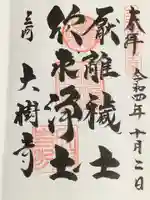 奉拝
令和四年十月二日
厭離穢土
欣求浄土
三河
大樹寺